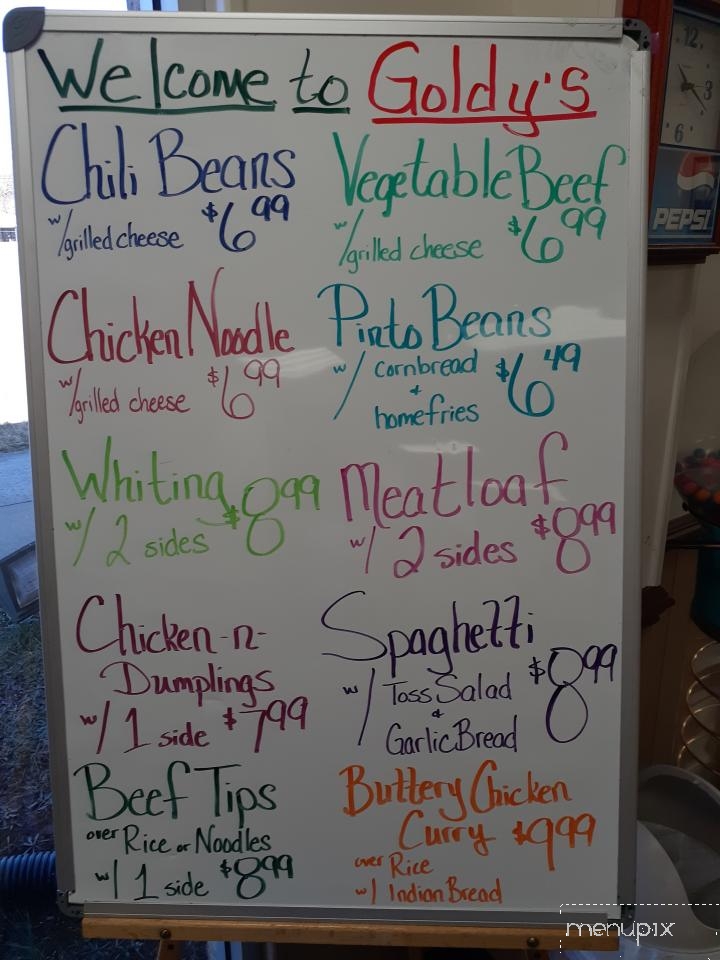 Welcome to Goldy's
Chili Beans
w/grilled cheese $6.99
Vegetable Beef
w/grilled cheese $6.99
Chicken Noodle
w/grilled cheese $6.99
Pinto Beans
w/ cornbread $6.49
+
homefries
Whiting $8.99
w/ 2 sides
Meatloaf
w/ 2 sides $8.99
Chicken-n-
Dumplings
w/ 1 side $7.99
Spaghetti
w/ Toss Salad $8.99
&
Garlic Bread
Beef Tips
over Rice or Noodles
w/ 1 side $8.99
Buttery Chicken
Curry $9.99
over Rice
w/ Indian Bread
12
3
6
PEPSI
menupix